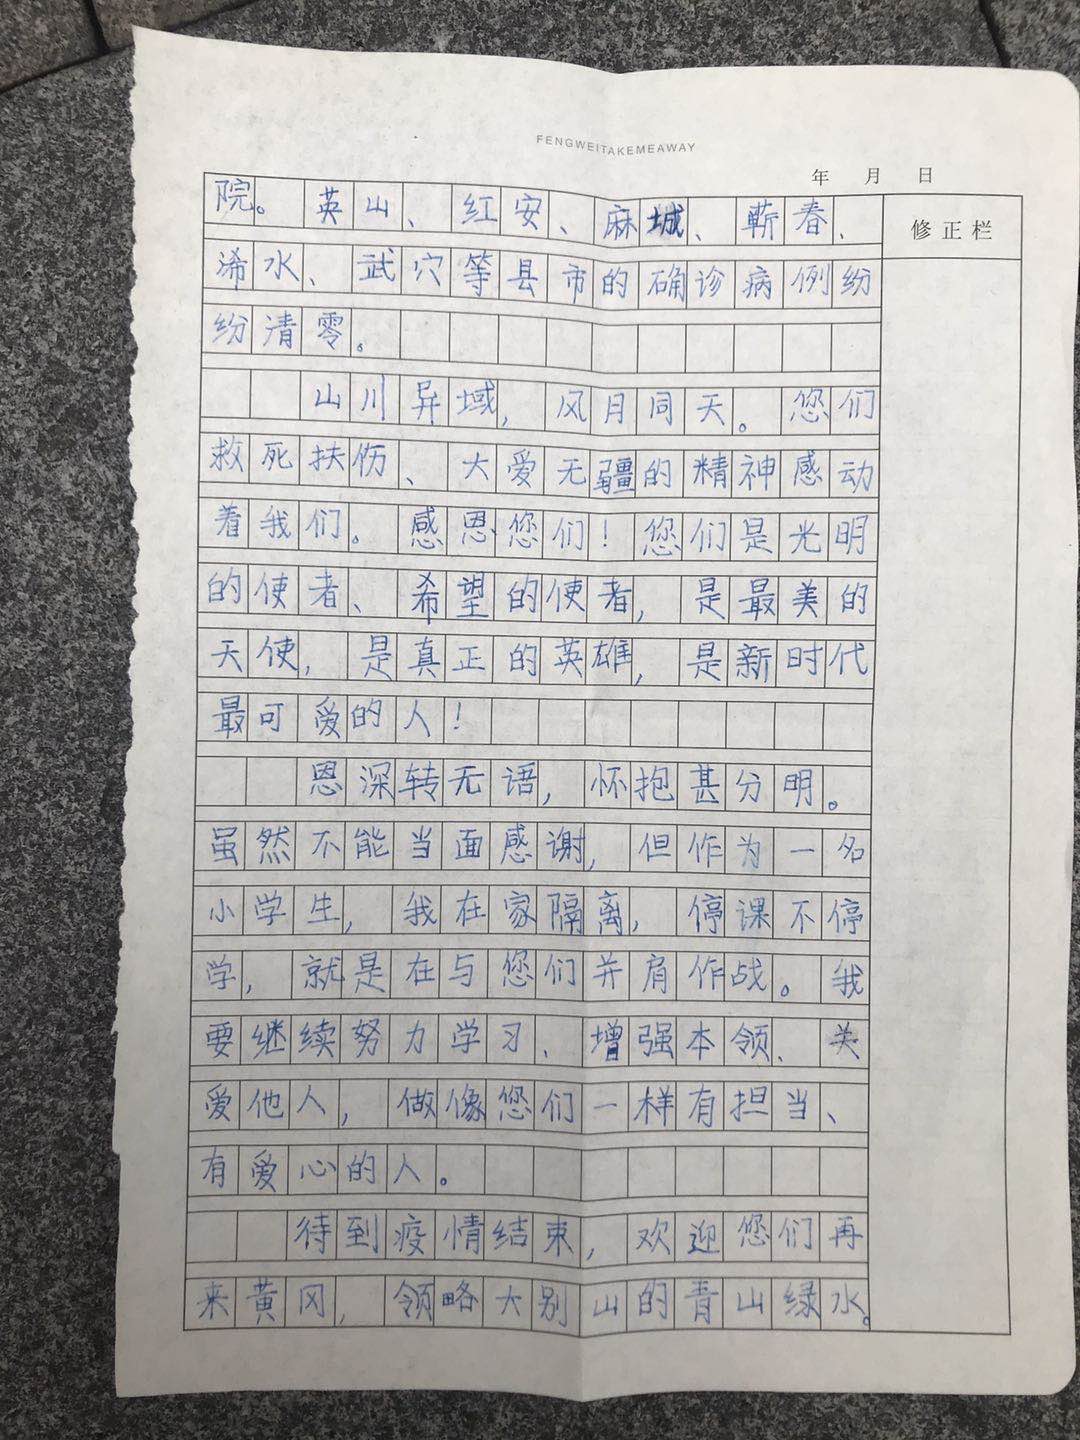 FENGWEITAKEMEAWAY
年 月 日
修正栏
院。英山、红安、麻城、蕲春、
浠水、武穴等县市的确诊病例纷
纷清零。
山川异域，风月同天。您们
救死扶伤、大爱无疆的精神感动
着我们。感恩您们！您们是光明
的使者、希望的使者，是最美的
天使，是真正的英雄，是新时代
最可爱的人！
恩深转无语，怀抱甚分明。
虽然不能当面感谢，但作为一名
小学生，我在家隔离，停课不停
学，就是在与您们并肩作战。我
要继续努力学习、增强本领、关
爱他人，做像您们一样有担当、
有爱心的人。
待到疫情结束，欢迎您们再
来黄冈，领略大别山的青山绿水。